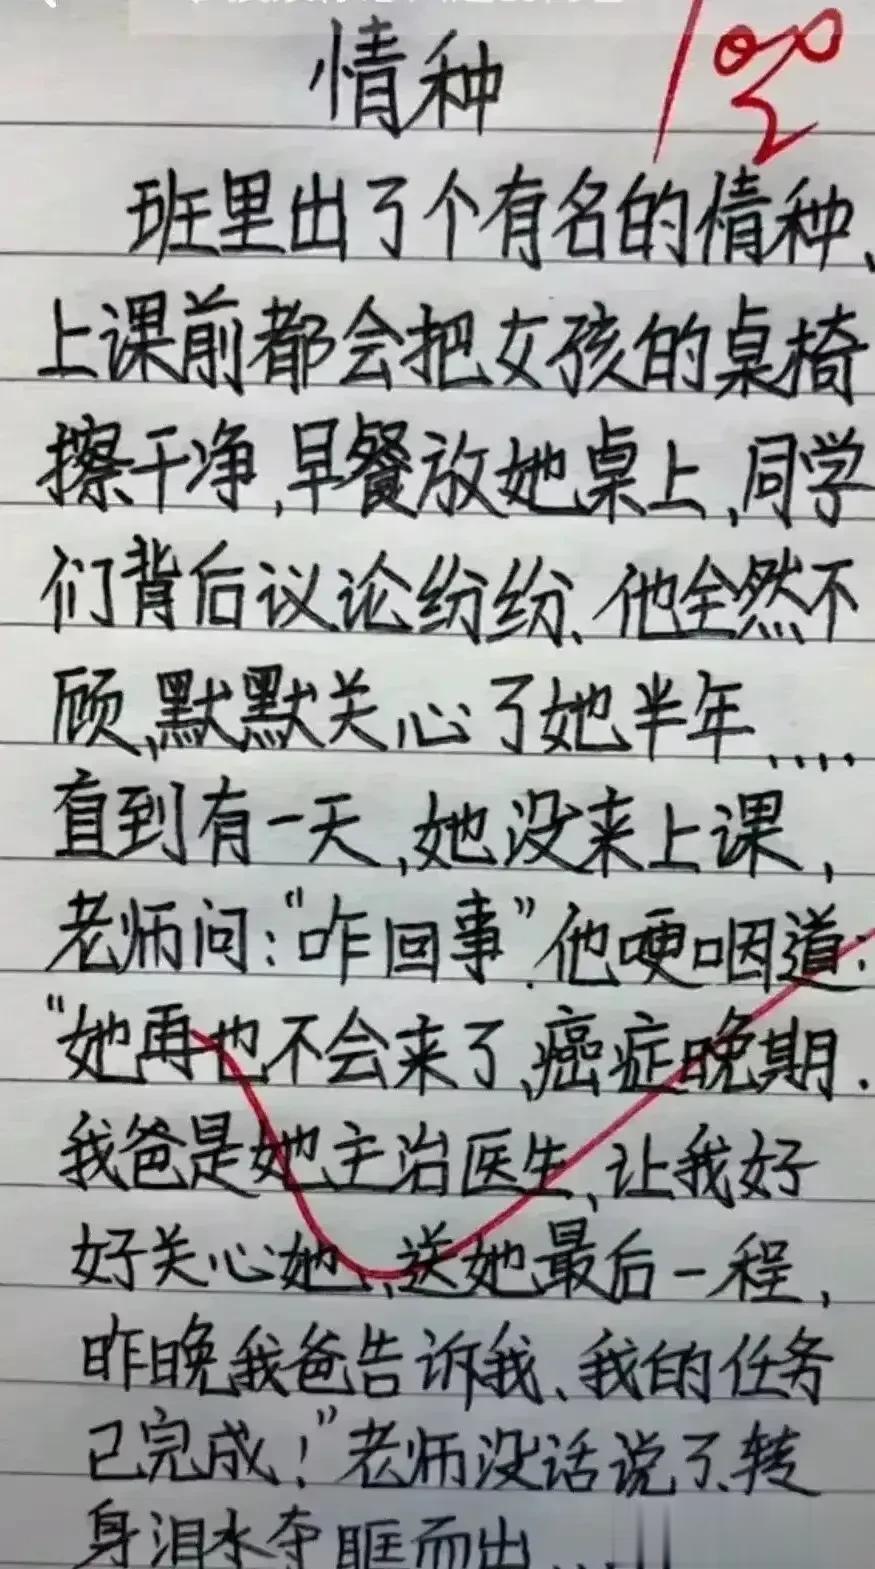 情种
100
班里出了个有名的情种、
上课前都会把女孩的桌椅
擦干净,早餐放她桌上,同学
们背后议论纷纷、他全然不
顾,默默关心了她半年....
直到有一天,她没来上课,
老师问:“咋回事”.他哽咽道:
“她再也不会来了,癌症晚期.
我爸是她主治医生,让我好
好关心她,送她最后一程,
昨晚我爸告诉我、我的任务
已完成!”老师没话说了、转
身泪水夺眶而出...